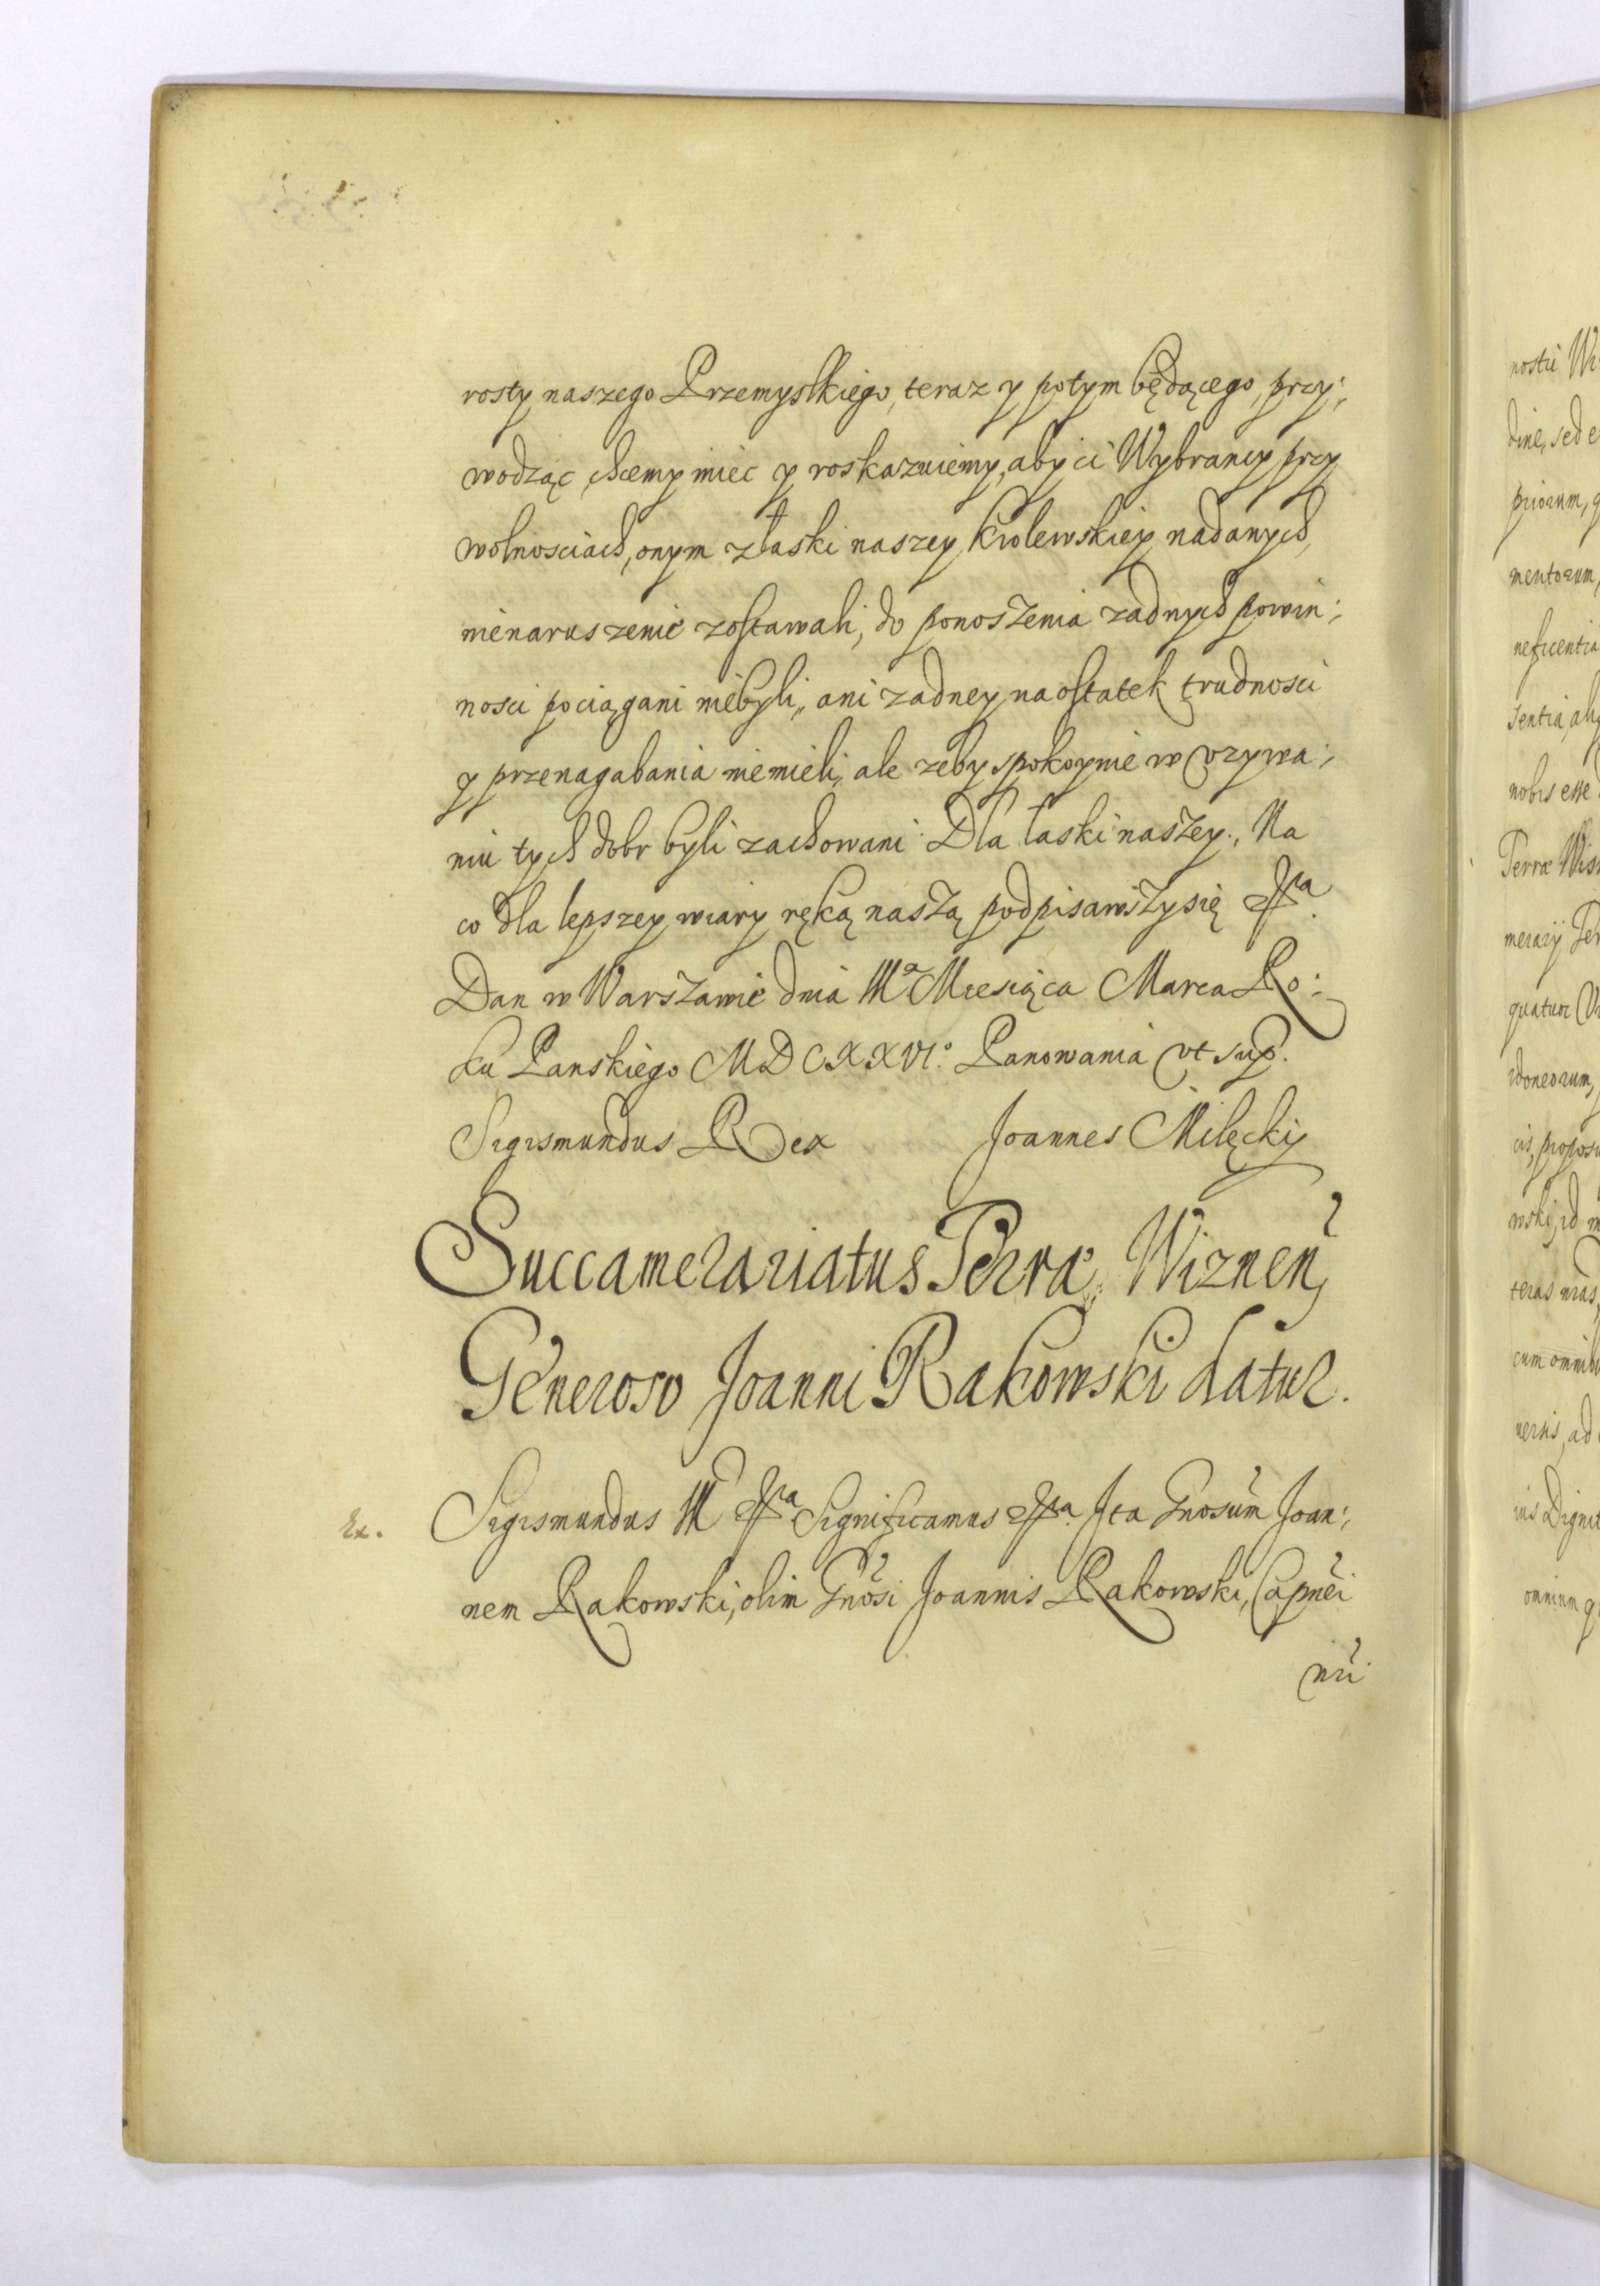 rosty naszego Przemyslkiego, teraz y potym będącego, przy:,
wodząc, chcemy miec y roskazuiemy, aby ci Wybrancy przy
wolnosciach, onym złaski naszey krolewskiey nadanych,
nienaruszenie zostawali, do ponoszenia zadnych powin:,
nosci pociągani niebyli, ani zadney na ostatek trudnosci
y przenagabania niemieli, ale zeby spokoynie w vzywa:,
niu tych dobr byli zachowani. Dla łaski naszey., Na
co dla lepszey wiary ręką naszą podpisawszy się &ca.
Dan w Warszawie dnia IIIa Miesiąca Marca Ro:
ku Panskiego MDCXXVIo. Panowania vt sup.
Sigismundus Rex Joannes Milęcky
Succamerariatus Terræ Wiznen
Generoso Joanni Rakowski datur.
Ex. Sigismundus III &ca Significamus &ca. Ita Gnosum Joan:,
nem Rakowski, olim Gnosi Joannis Rakowski, Capnei
nri
nostri
dine, sed e
priorum,
mentorum,
neficentia
sentia,
nobis esse
Terræ
merarij
quatuor
idoneorum,
cis,
wski, id
teras nras,
cum
uersis, ad
ius
omnium